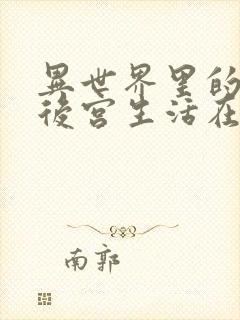 異世界里的
後宮生活在
南郭